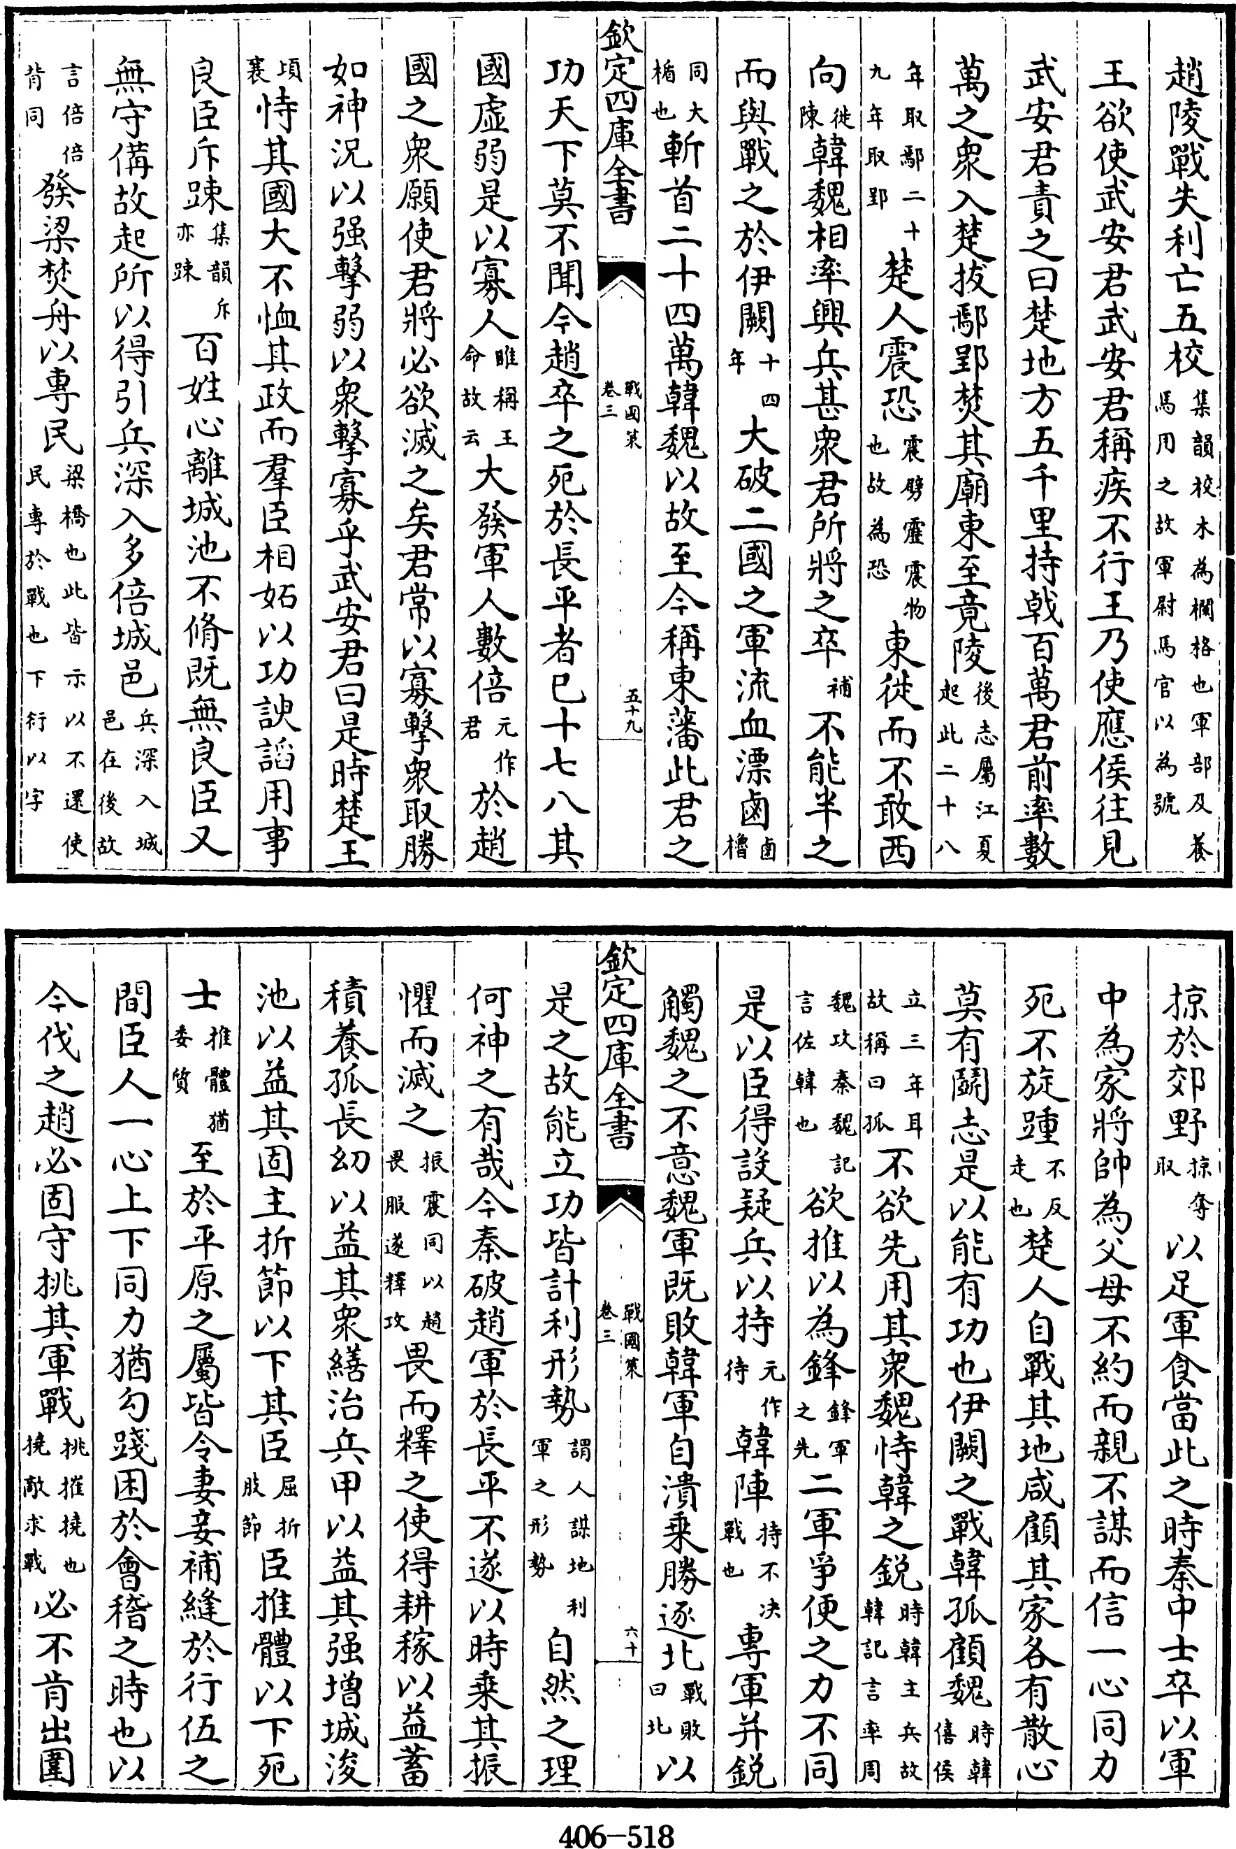 趙陵戰失利亡五校集韻校木為欄格也軍部及養馬用之故軍尉馬官以為號
王欲使武安君武安君稱疾不行王乃使應侯往見
武安君責之曰楚地方五千里持戟百萬君前率數
萬之衆入楚拔鄢郢焚其廟東至竟陵後志屬江夏起此二十八
年取鄢二十九年取郢楚人震恐震劈靂震物也故為恐東徙而不敢西
向徙陳韓魏相率興兵甚衆君所將之卒補不能半之
而與戰之於伊闕十四年大破二國之軍流血漂鹵鹵櫓
同大楯也斬首二十四萬韓魏以故至今稱東藩此君之
欽定四庫全書
戰國策
卷三
五十九
功天下莫不聞今趙卒之死於長平者已十七八其
國虛弱是以寡人雎稱王命故云大發軍人數倍元作君於趙
國之衆願使君將必欲滅之矣君常以寡擊衆取勝
如神況以强擊弱以衆擊寡乎武安君曰是時楚王
頃襄恃其國大不恤其政而羣臣相妬以功諛謟用事
良臣斥踈集韻斥亦踈百姓心離城池不脩既無良臣又
無守備故起所以得引兵深入多倍城邑兵深入城邑在後故
言倍倍背同發梁焚舟以專民梁橋也此皆示以不還使民專於戰也下衍以字
掠於郊野掠奪取以足軍食當此之時秦中士卒以軍
中為家將帥為父母不約而親不謀而信一心同力
死不旋踵不反走也楚人自戰其地咸顧其家各有散心
莫有鬬志是以能有功也伊闕之戰韓孤顧魏時韓僖侯
立三年耳故稱曰孤不欲先用其衆魏恃韓之銳時韓主兵故韓記言率周
魏攻秦魏記言佐韓也欲推以為鋒鋒軍之先二軍爭便之力不同
是以臣得設疑兵以持元作待韓陣持不决戰也專軍并銳
觸魏之不意魏軍既敗韓軍自潰乘勝逐北戰敗曰北以
欽定四庫全書
戰國策
卷三
六十
是之故能立功皆計利形勢謂人謀地利軍之形勢自然之理
何神之有哉今秦破趙軍於長平不遂以時乘其振
懼而滅之振震同以趙畏服遂釋攻畏而釋之使得耕稼以益蓄
積養孤長幼以益其衆繕治兵甲以益其强增城浚
池以益其固主折節以下其臣屈折肢節臣推體以下死
士推體猶委質至於平原之屬皆令妻妾補縫於行伍之
間臣人一心上下同力猶勾踐困於會稽之時也以
今伐之趙必固守挑其軍戰挑摧撓也撓敵求戰必不肯出圍
406-518